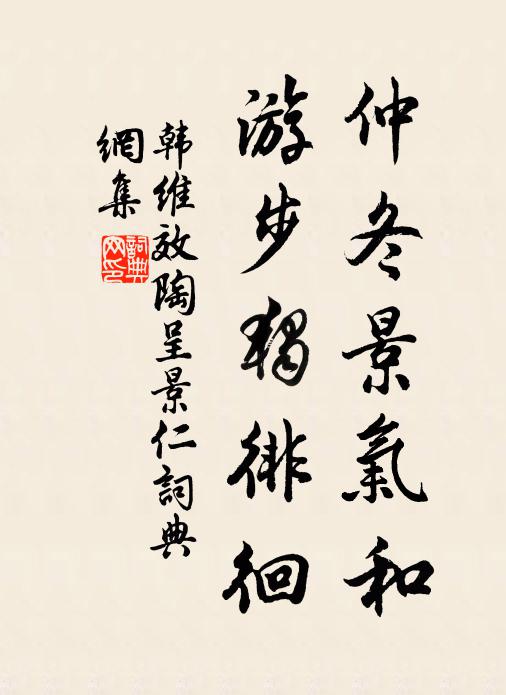 仲冬景氣和
游步獨徘徊
韩維效陶呈景仁詞典
網集
詞典
网印